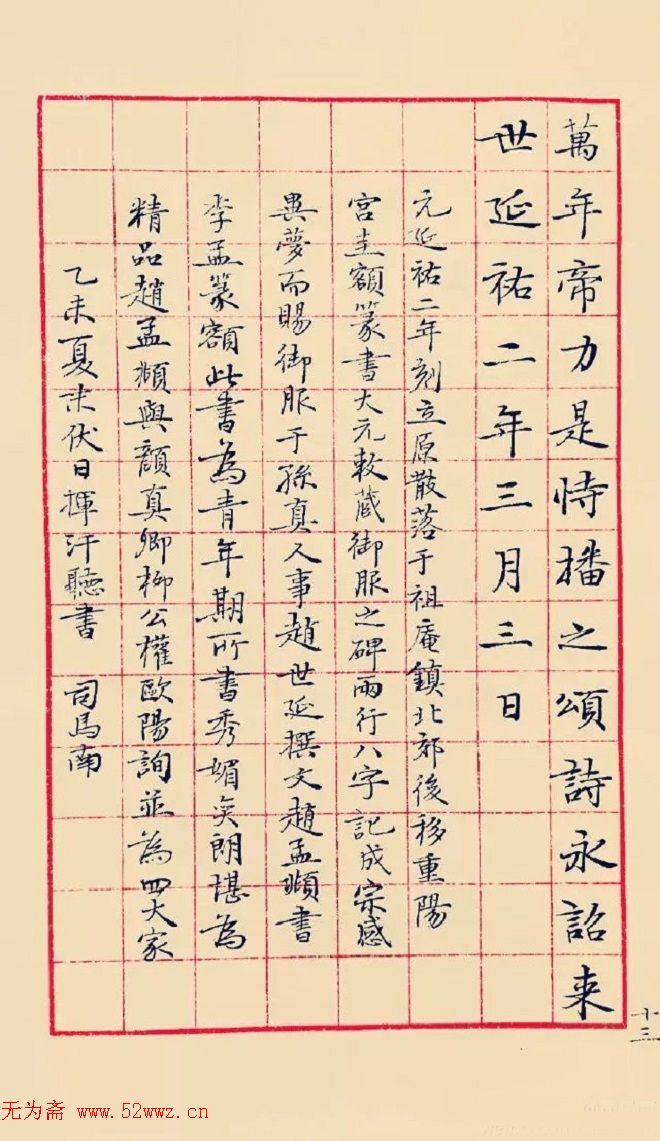 萬年帝力是恃播之頌詩永詔来
世延祐二年三月三日
元延祐二年刻立原散落于祖庵鎮北郊後移重陽
宫圭額篆書大元敕蔵御服之碑兩行八字記成宗感
異夢而賜御服于孫真人事趙世延撰文趙孟頫書
李孟篆額此書為青年期所書秀媚爽朗堪為
精品趙孟頫與顔真卿柳公權歐陽詢並為四大家
乙未夏末伏日揮汗聽書 司馬南
十三
无为斋 www.52wwz.cn